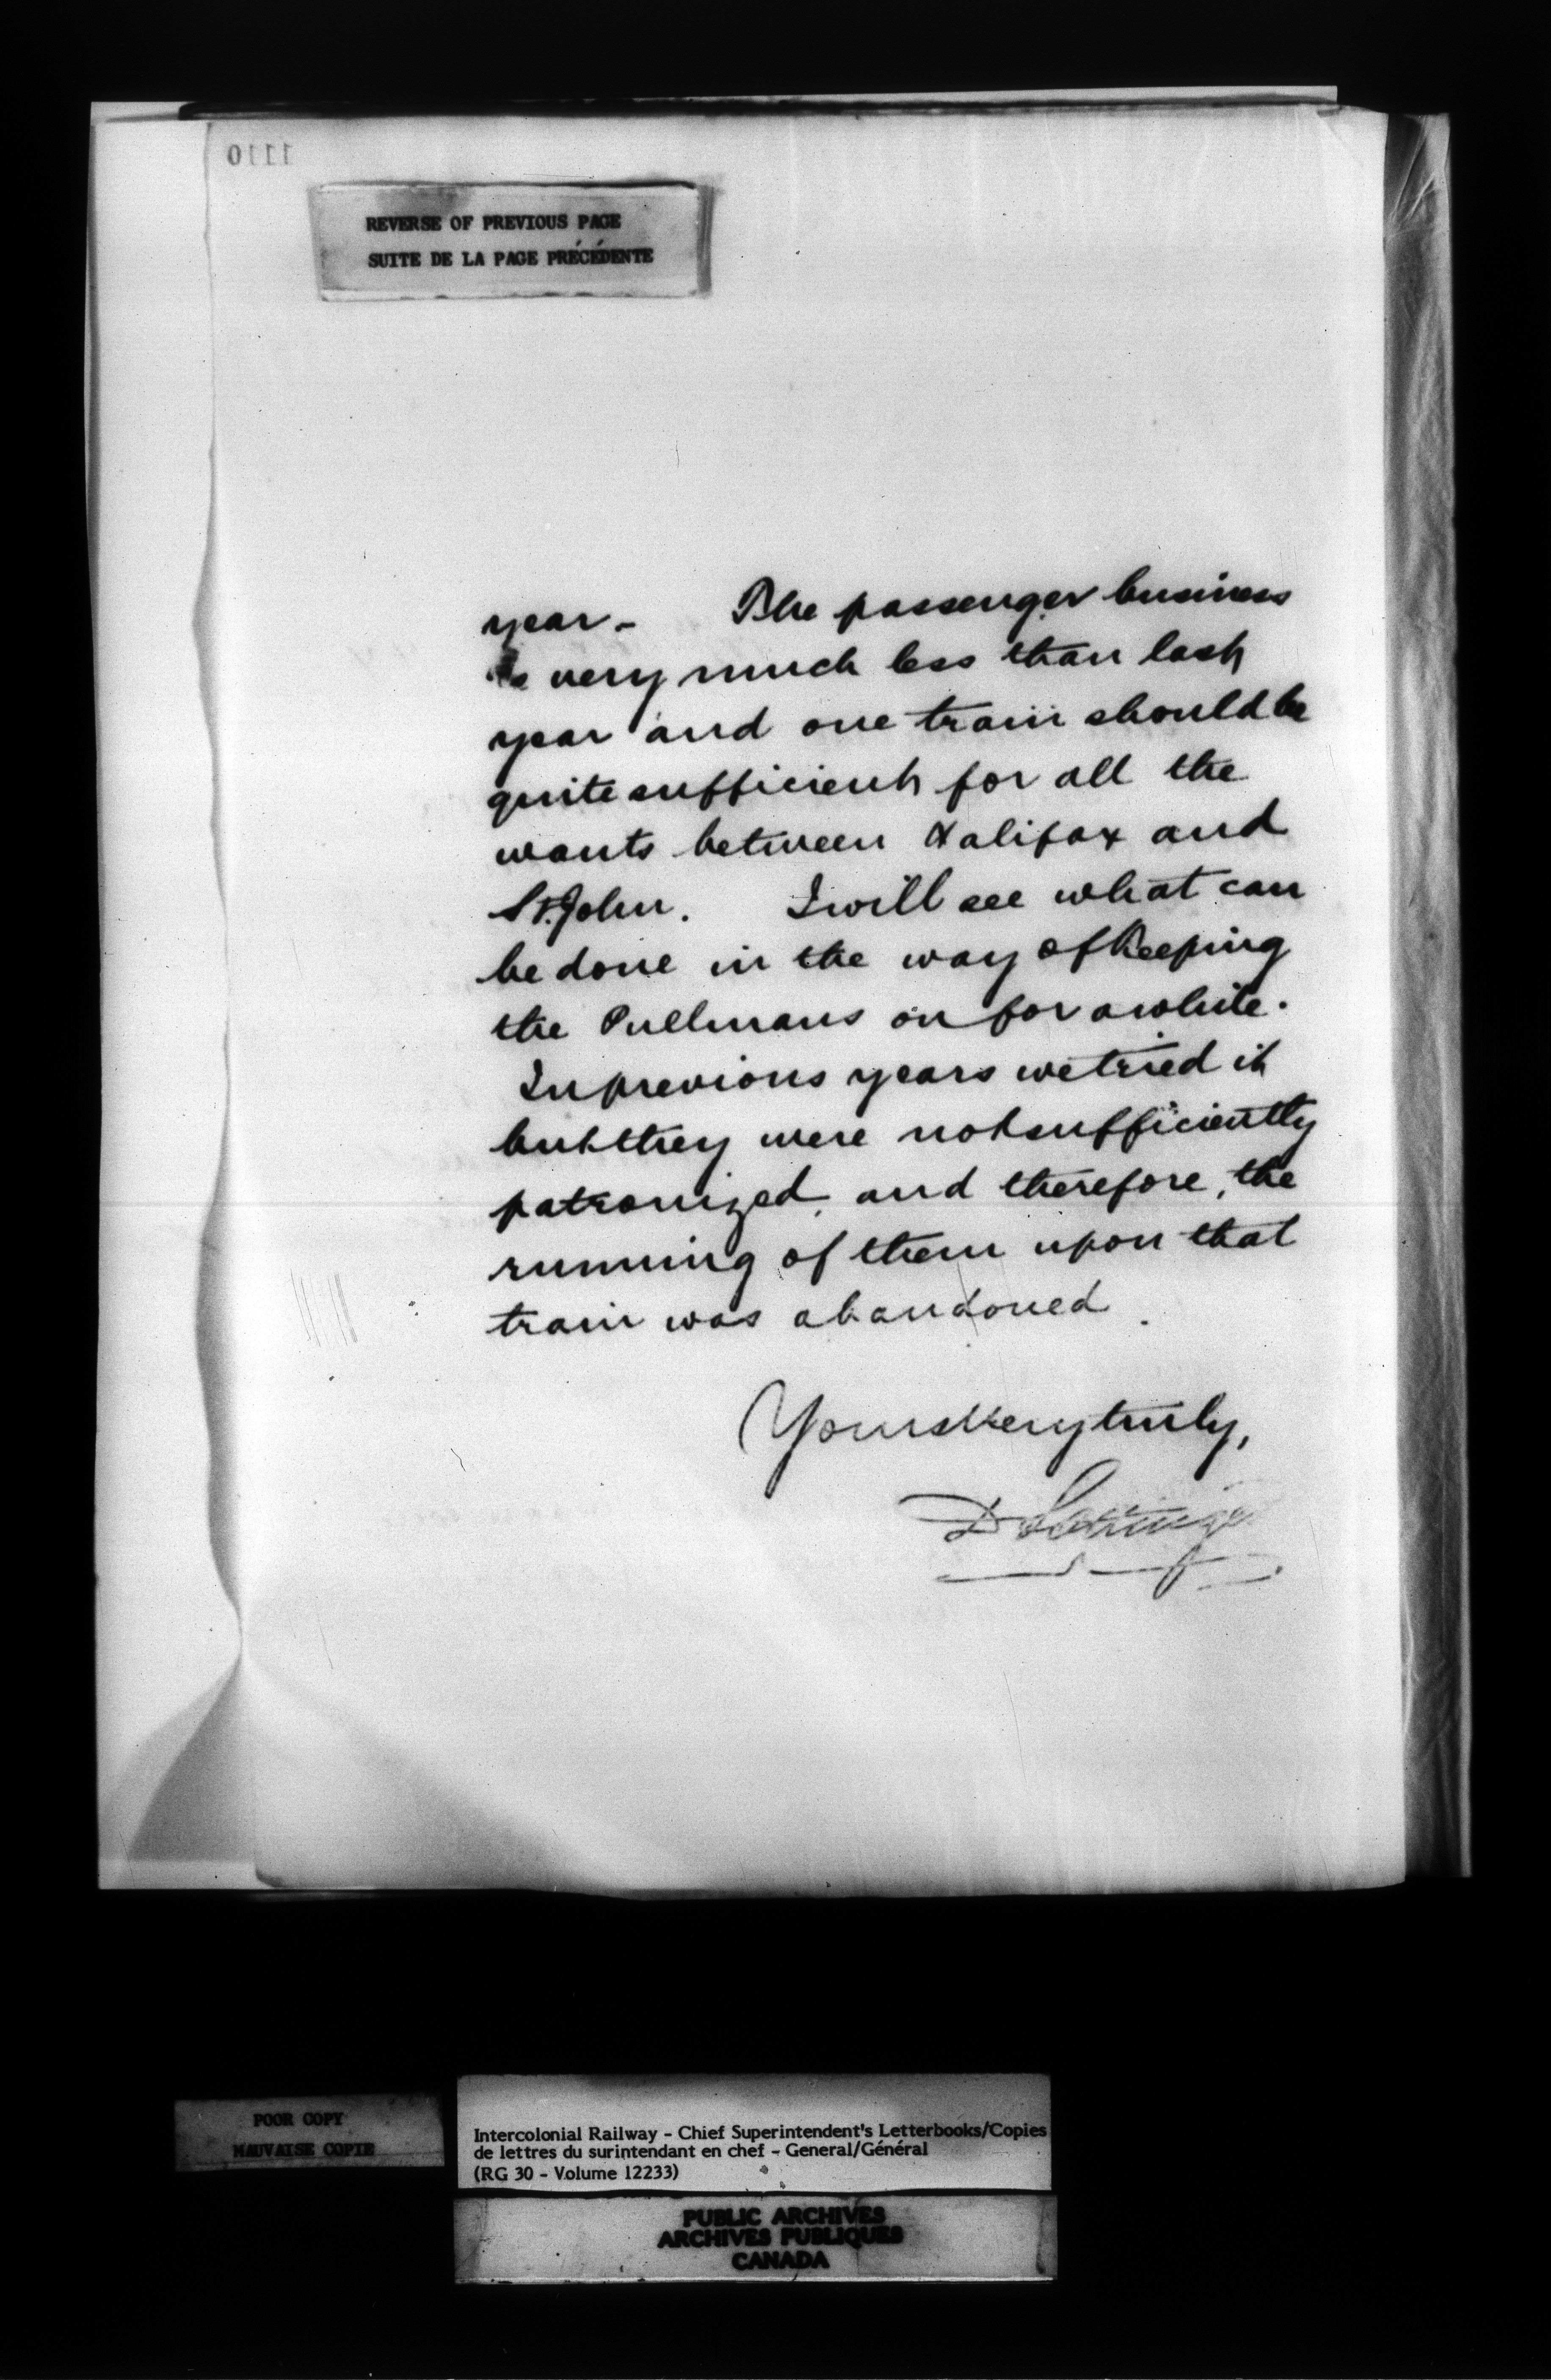 1110
REVERSE OF PREVIOUS PAGE
SUITE DE LA PAGE PRÉCÉDENTE
year - The passenger business
is very much less than last
year and one train should be
quite sufficient for all the
wants between Halifax and
St. John. I will see what can
be done in the way of keeping
the Pullmans on for a while.
In previous years we tried it
but they were not sufficiently
patronized, and therefore, the
running of them upon that
train was abandoned.
Yours Very truly,
D Pottinger
POOR COPY
MAUVAISE COPIE
Intercolonial Railway - Chief Superintendent's Letterbooks/Copies
de lettres du surintendant en chef - General/Général
(RG 30 - Volume 12233)
PUBLIC ARCHIVES
ARCHIVES PUBLIQUES
CANADA